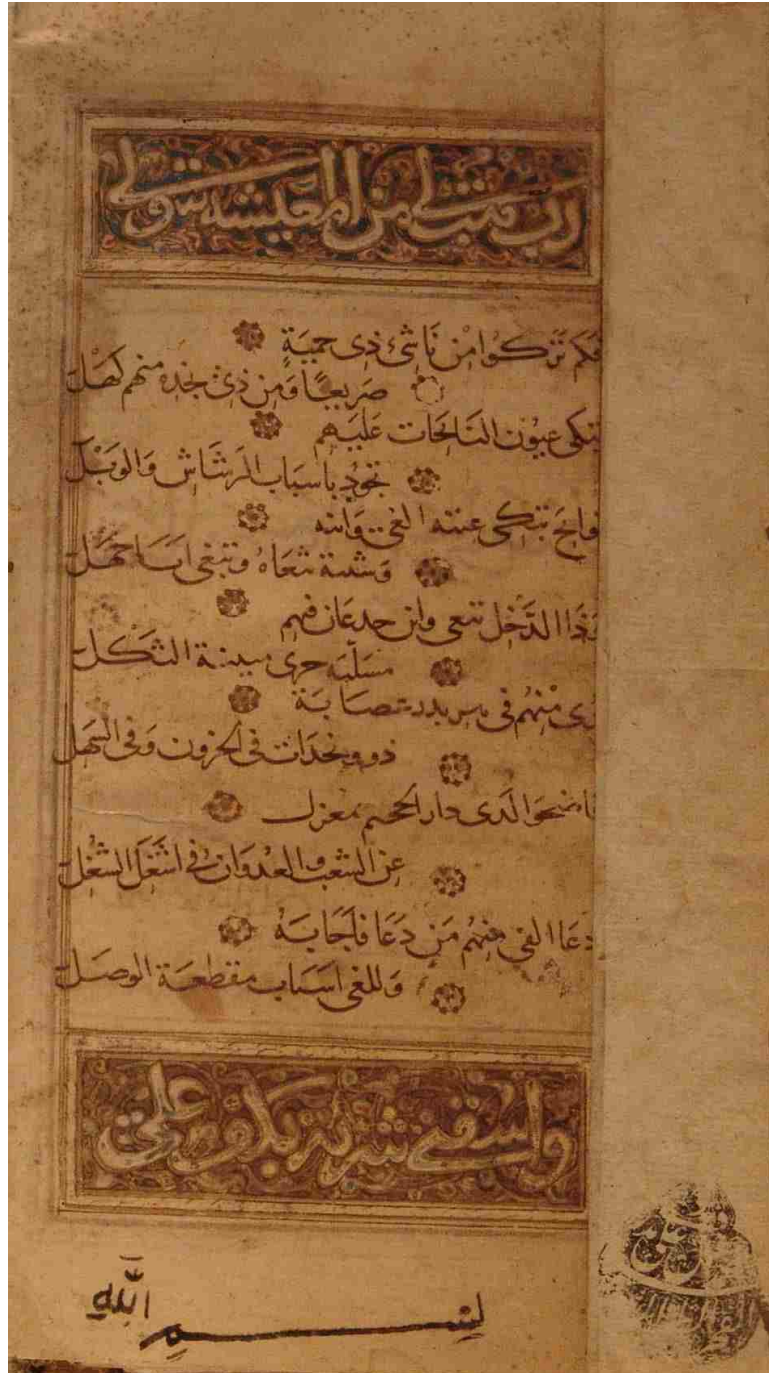 رب هب لي من المعيشة سولي
فكم تركوا من ناشئ ذي حمية
صريعا ومن ذي نجدة منهم كهل
تبكي عيون النائحات عليهم
تجود باسباب الرشاش والوبل
نوايح تبكي عتبة الغي وابنه
وشيبة تنعاه وتنعي ابا جهل
وذا الذحل تنعى وابن جدعان فيهم
مسلبة حرى مبينة الثكل
ثوى منهم في بير بدر عصابة
ذوو نجدات في الحزون وفي السهل
فاضحوا لدى دار الجحيم بمعزل
عن الشغب والعدوان في اشغل الشغل
دعا الغي منهم من دعا فاجابه
وللغي اسباب مقطعة الوصل
واسقني شربة بكف علي
بسم الله